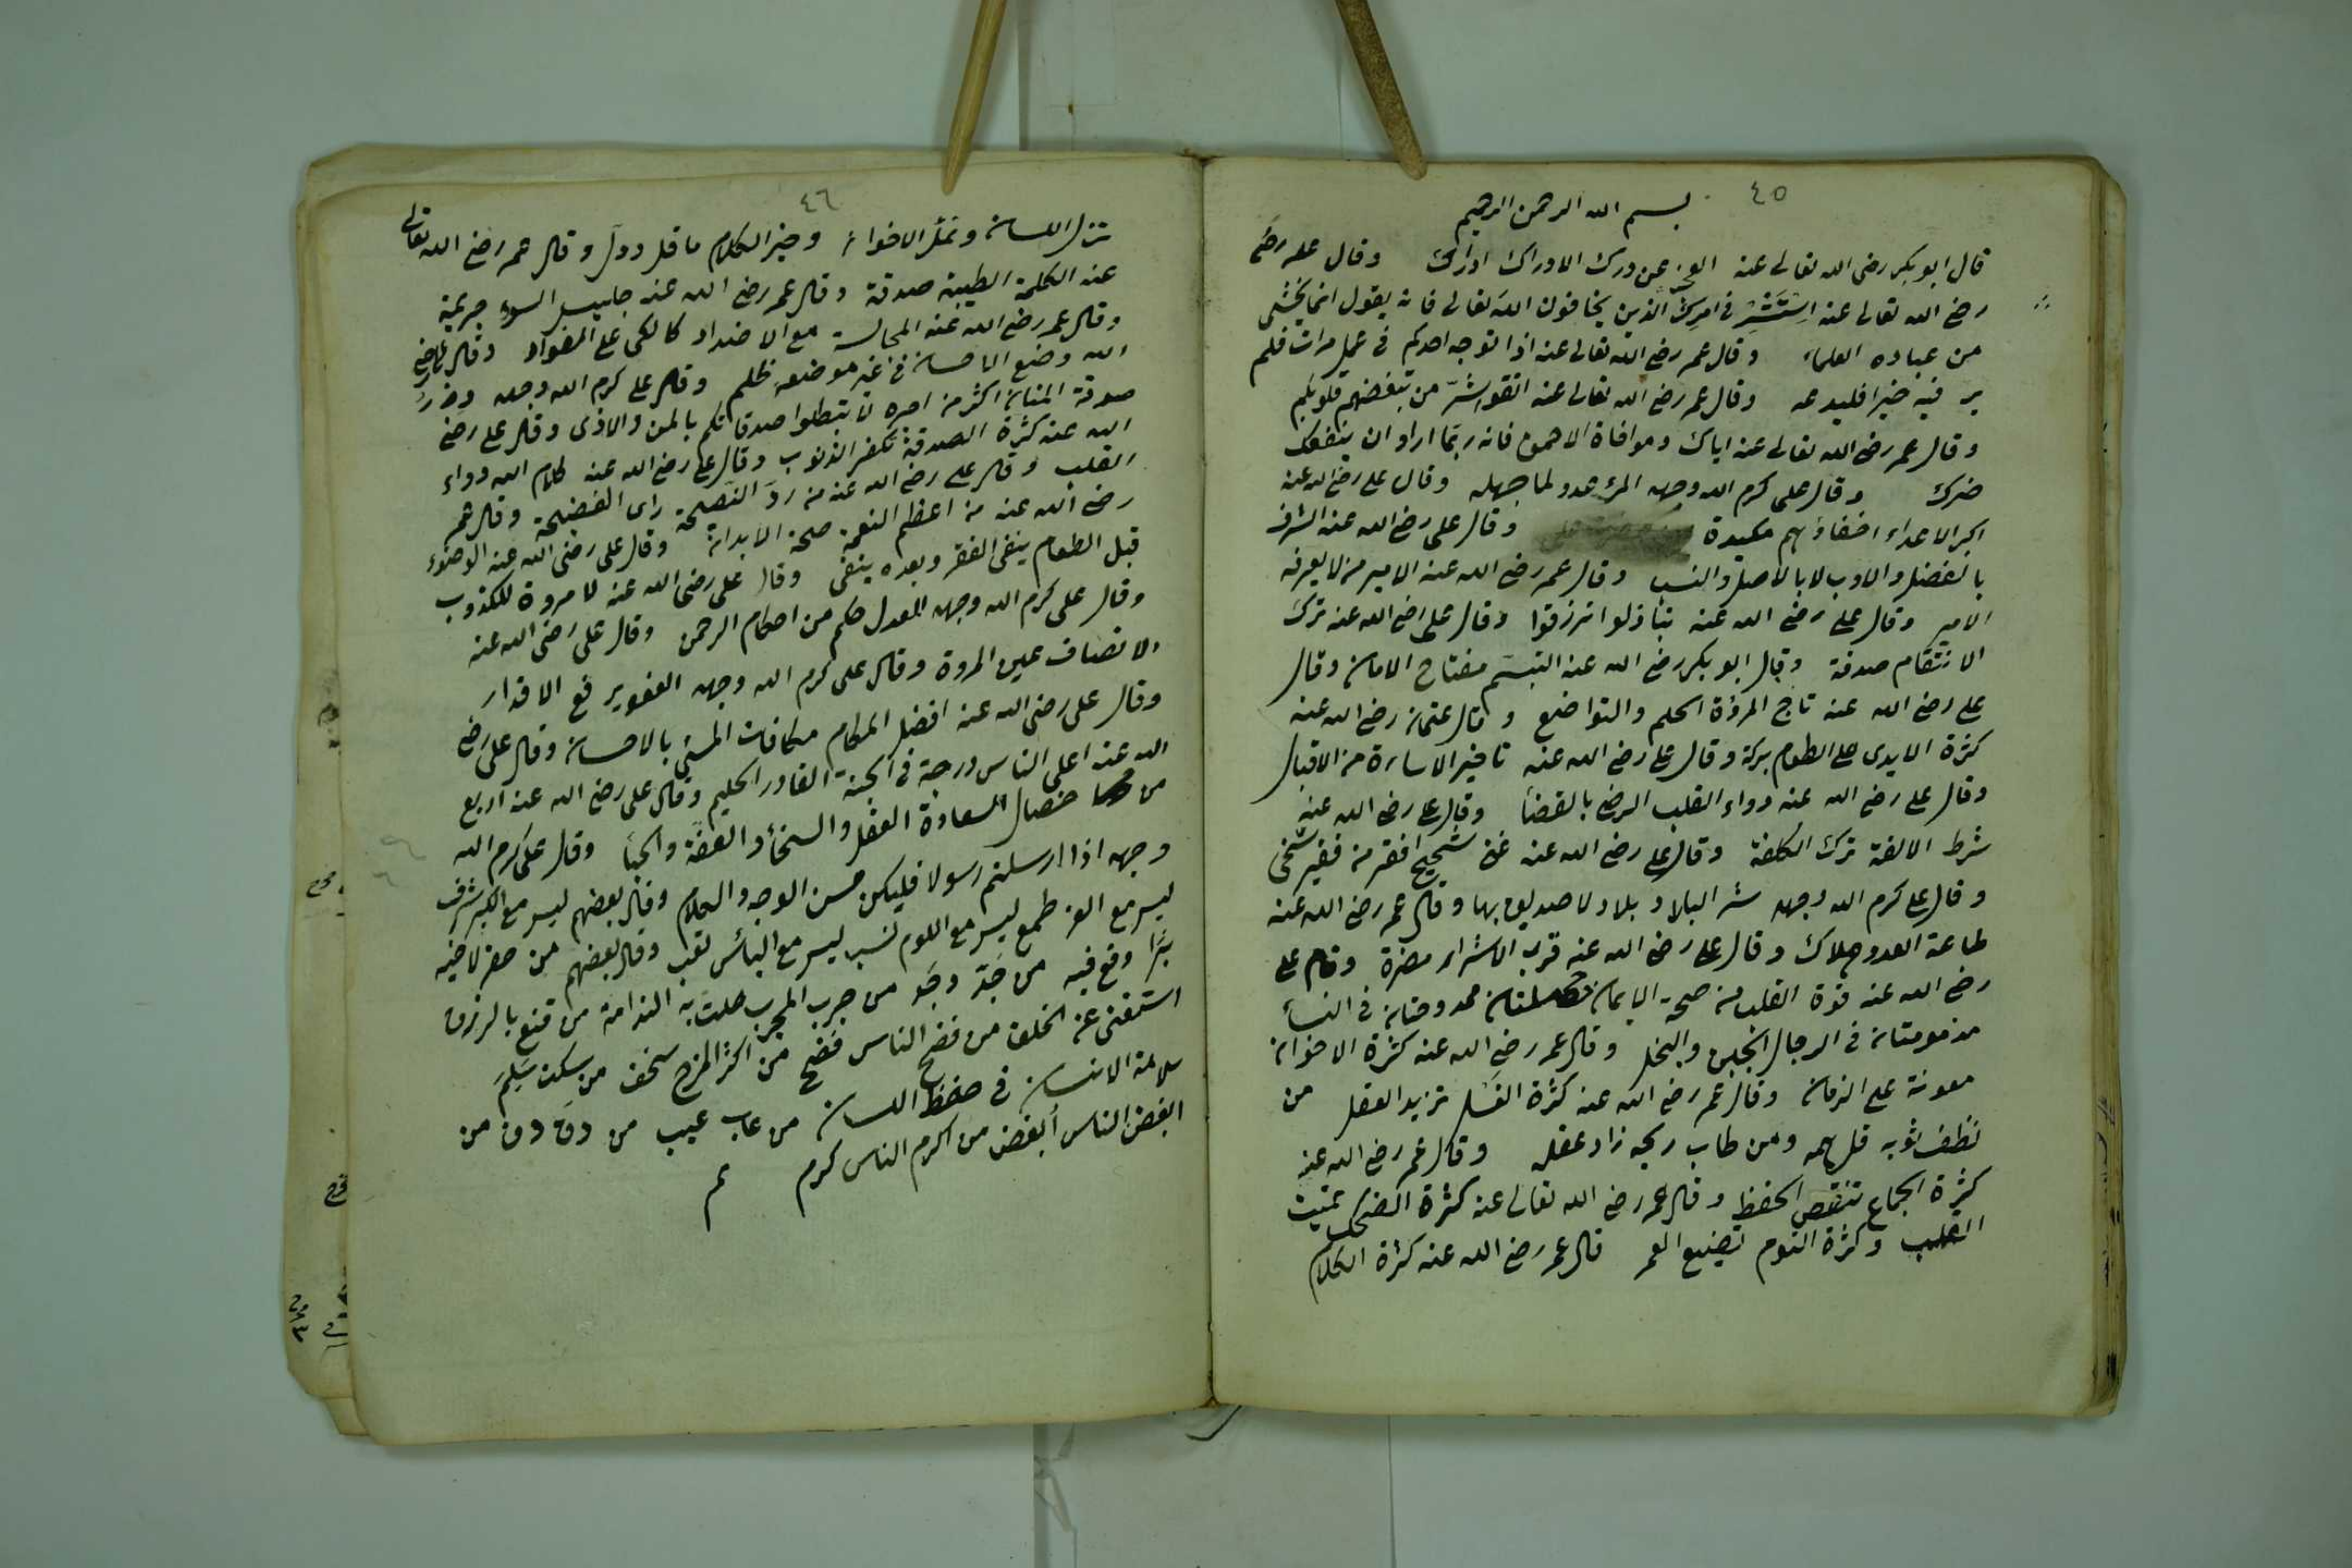 ٤٥
بسم الله الرحمن الرحيم
قال ابو بكر رضى الله تعالى عنه العجز عن درك الادراك ادراك وقال عمر رضى
رضى الله تعالى عنه استشر فى امرك الذين يخافون الله تعالى فانه يقول انما يخشى
من عباده العلماء وقال عمر رضى الله تعالى عنه اذا توجه احدكم فى عمل مرات فلم
ير فيه خيرا فليدعه وقال عمر رضى الله تعالى عنه اتقوا شر من تبغضهم قلوبكم
وقال عمر رضى الله تعالى عنه اياك وموافاة الاحمق فانه ربما اراد ان ينفعك
ضرك وقال على كرم الله وجهه المرء عدو لما جهله وقال على رضى الله عنه
اكبر الاعداء اخفاؤهم مكيدة وقال على رضى الله عنه الشرف
بالفضل والادب لا بالاصل والنسب وقال عمر رضى الله عنه الامير من لا يعرفه
الامير وقال على رضى الله عنه تباذلوا ترزقوا وقال على رضى الله عنه ترك
الانتقام صدقة وقال ابو بكر رضى الله عنه التبسم مفتاح الامان وقال
على رضى الله عنه تاج المروة الحلم والتواضع وقال عثمان رضى الله عنه
كثرة الايدى على الطعام بركة وقال على رضى الله عنه تاخير الاساءة من الاقبال
وقال على رضى الله عنه دواء القلب الرضى بالقضا وقال على رضى الله عنه
شرط الالفة ترك الكلفة وقال على رضى الله عنه غنى شحيح افقر من فقير سخى
وقال على كرم الله وجهه شر البلاد بلاد لا صديق بها وقال عمر رضى الله عنه
طاعة العدو هلاك وقال على رضى الله عنه قرب الاشرار مضرة وقال على
رضى الله عنه قوة القلب من صحة الايمان خصلتان ممدوحتان فى النساء
مذمومتان فى الرجال الجبن والبخل وقال عمر رضى الله عنه كثرة الاخوان
معونة على الزمان وقال عمر رضى الله عنه كثرة الغسل تزيد العقل من
نظف ثوبه قل همه ومن طاب ريحه زاد عقله وقال عمر رضى الله عنه
كثرة الجماع تنقص الحفظ وقال عمر رضى الله تعالى عنه كثرة الضحك تميت
القلب وكثرة النوم تضيع العمر قال عمر رضى الله عنه كثرة الكلام
٤٦
تزل اللسان وتمل الاخوان وخير الكلام ما قل ودل وقال عمر رضى الله تعالى
عنه الكلمة الطيبة صدقة وقال عمر رضى الله عنه جليس السوء جريمة
وقال عمر رضى الله عنه المجالسة مع الاضداد كالكى على الفؤاد وقال على رضى
الله وضع الاحسان فى غير موضعه ظلم وقال على كرم الله وجهه وزر
صدقة المنان اكثر من اجره لا تبطلوا صدقاتكم بالمن والاذى وقال على رضى
الله عنه كثرة الصدقة تكفر الذنوب وقال على رضى الله عنه كلام الله دواء
القلب وقال على رضى الله عنه من رد النصيحة راى الفضيحة وقال عمر
رضى الله عنه من اعظم النعمة صحة الابدان وقال على رضى الله عنه الوضوء
قبل الطعام ينفى الفقر وبعده ينفى وقال على رضى الله عنه لا مروة للكذوب
وقال على كرم الله وجهه العدل حكم من احكام الرحمن وقال على رضى الله عنه
الانصاف عين المروة وقال على كرم الله وجهه العفو مع الاقدار
وقال على رضى الله عنه افضل المكارم مكافات المسئ بالاحسان وقال على رضى
الله عنه اعلى الناس درجة فى الجنة القادر الحليم وقال على رضى الله عنه اربع
من خصال السعادة العقل والسخأ والعفة والحيا وقال على كرم الله
وجهه اذا ارسلتم رسولا فليكن حسن الوجه والكلام وقال بعضهم ليس مع الكبر شرف
ليس مع العز طمع ليس مع اللوم نسب ليس مع اليأس تعب وقال بعضهم من حفر لاخيه
بئرا وقع فيه من جد وجد من جرب المجرب حلت به الندامة من قنع بالرزق
استغنى عن الخلق من فضح الناس فضح من اكثر المزح سخف من سكت سلم
سلامة الانسان فى حفظ اللسان من عاب عيب من دق دق من
ابغض الناس ابغض من اكرم الناس كرم تم